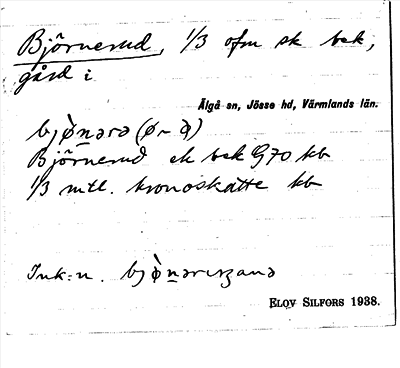 Björnerud, 1/3 ofm sk bek,
gård i
Älgå sn, Jösse hd, Värmlands län.
bjø̀ṉərə (ø ~ ə̀)
Björnerud ek bek G70 kb
1/3 mtl. kronoskatte kb
Ink:n. bjø̀ṉər
ELOV SILFORS 1938.